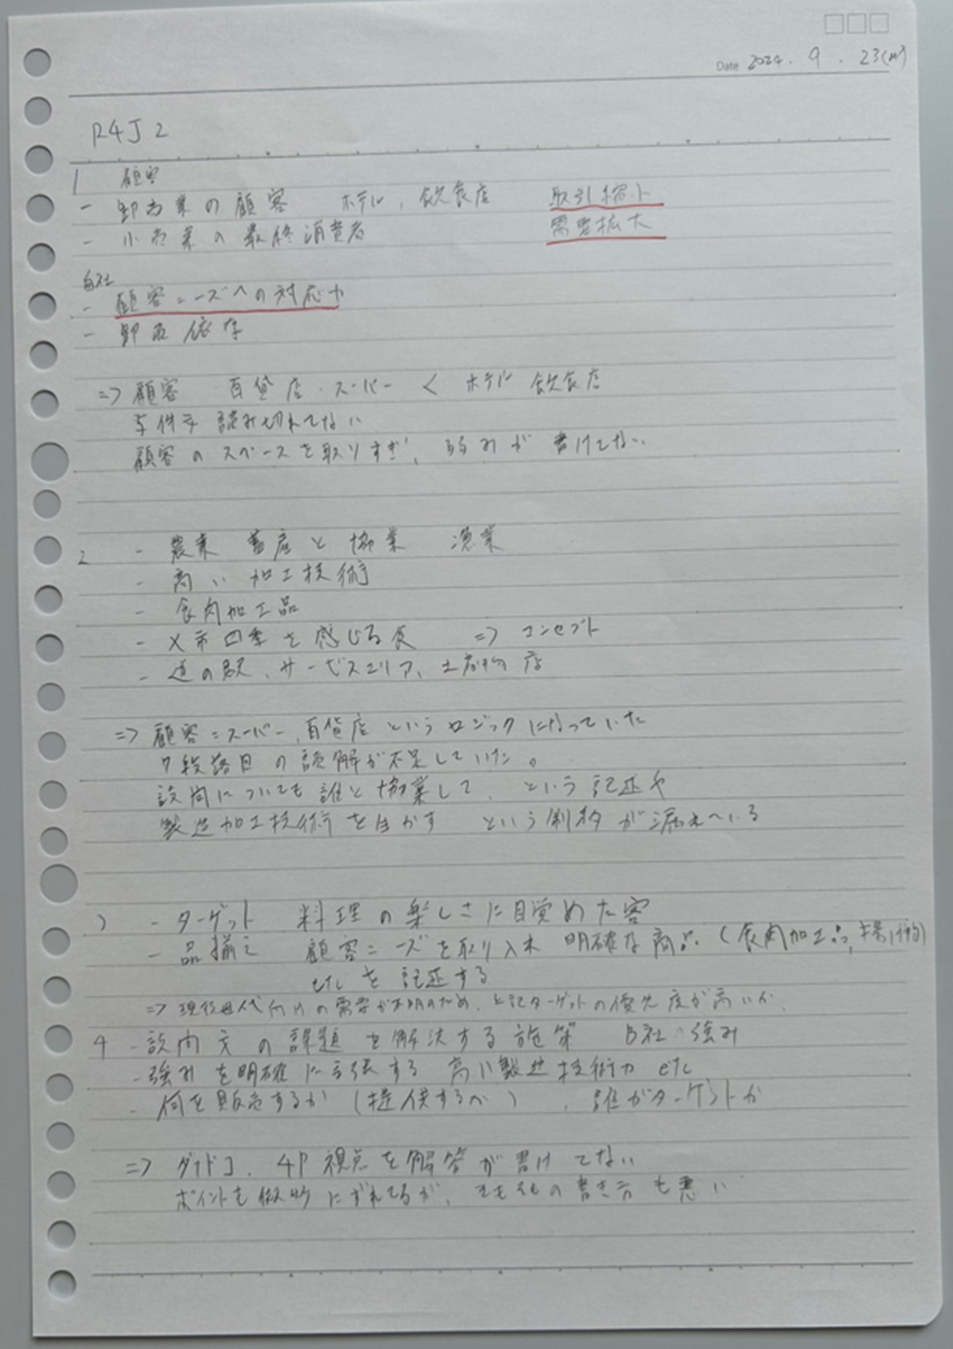 Date 2024. 9. 23(m)
R4J2
1 顧客
- 卸売業の顧客 ホテル, 飲食店 取引縮小
- 小売業の最終消費者 需要拡大
自社
- 顧客ニーズへの対応力
- 卸売依存
=> 顧客 百貨店・スーパー < ホテル 飲食店
与件を読み切れてない
顧客のスペースを取りすぎ, 弱みが書けてない
2 - 農業 畜産と協業 漁業
- 高い加工技術
- 食肉加工品
- X市四季を感じる食 => コンセプト
- 道の駅、サービスエリア、土産物店
=> 顧客=スーパー, 百貨店というロジックになっていた
7段落目の読解が不足していた。
設問についても誰と協業して、という記述や
製造加工技術を生かす という制約が漏れている
3 - ターゲット 料理の楽しさに目覚めた客
- 品揃え 顧客ニーズを取り入れ 明確な商品 (食肉加工品,
etc を記述する
=> 現役世代向けの需要が不明のため、上記ターゲットの優先度が高いか.
4 - 設問文の課題を解決する施策 B社 強み
- 強みを明確に主張する 高い製造技術力 etc
- 何を販売するか (提供するか) , 誰がターゲットか
=> ダナドコ、4P視点を解答が書けてない
ポイントも微妙にずれてるが、そもそもの書き方も悪い